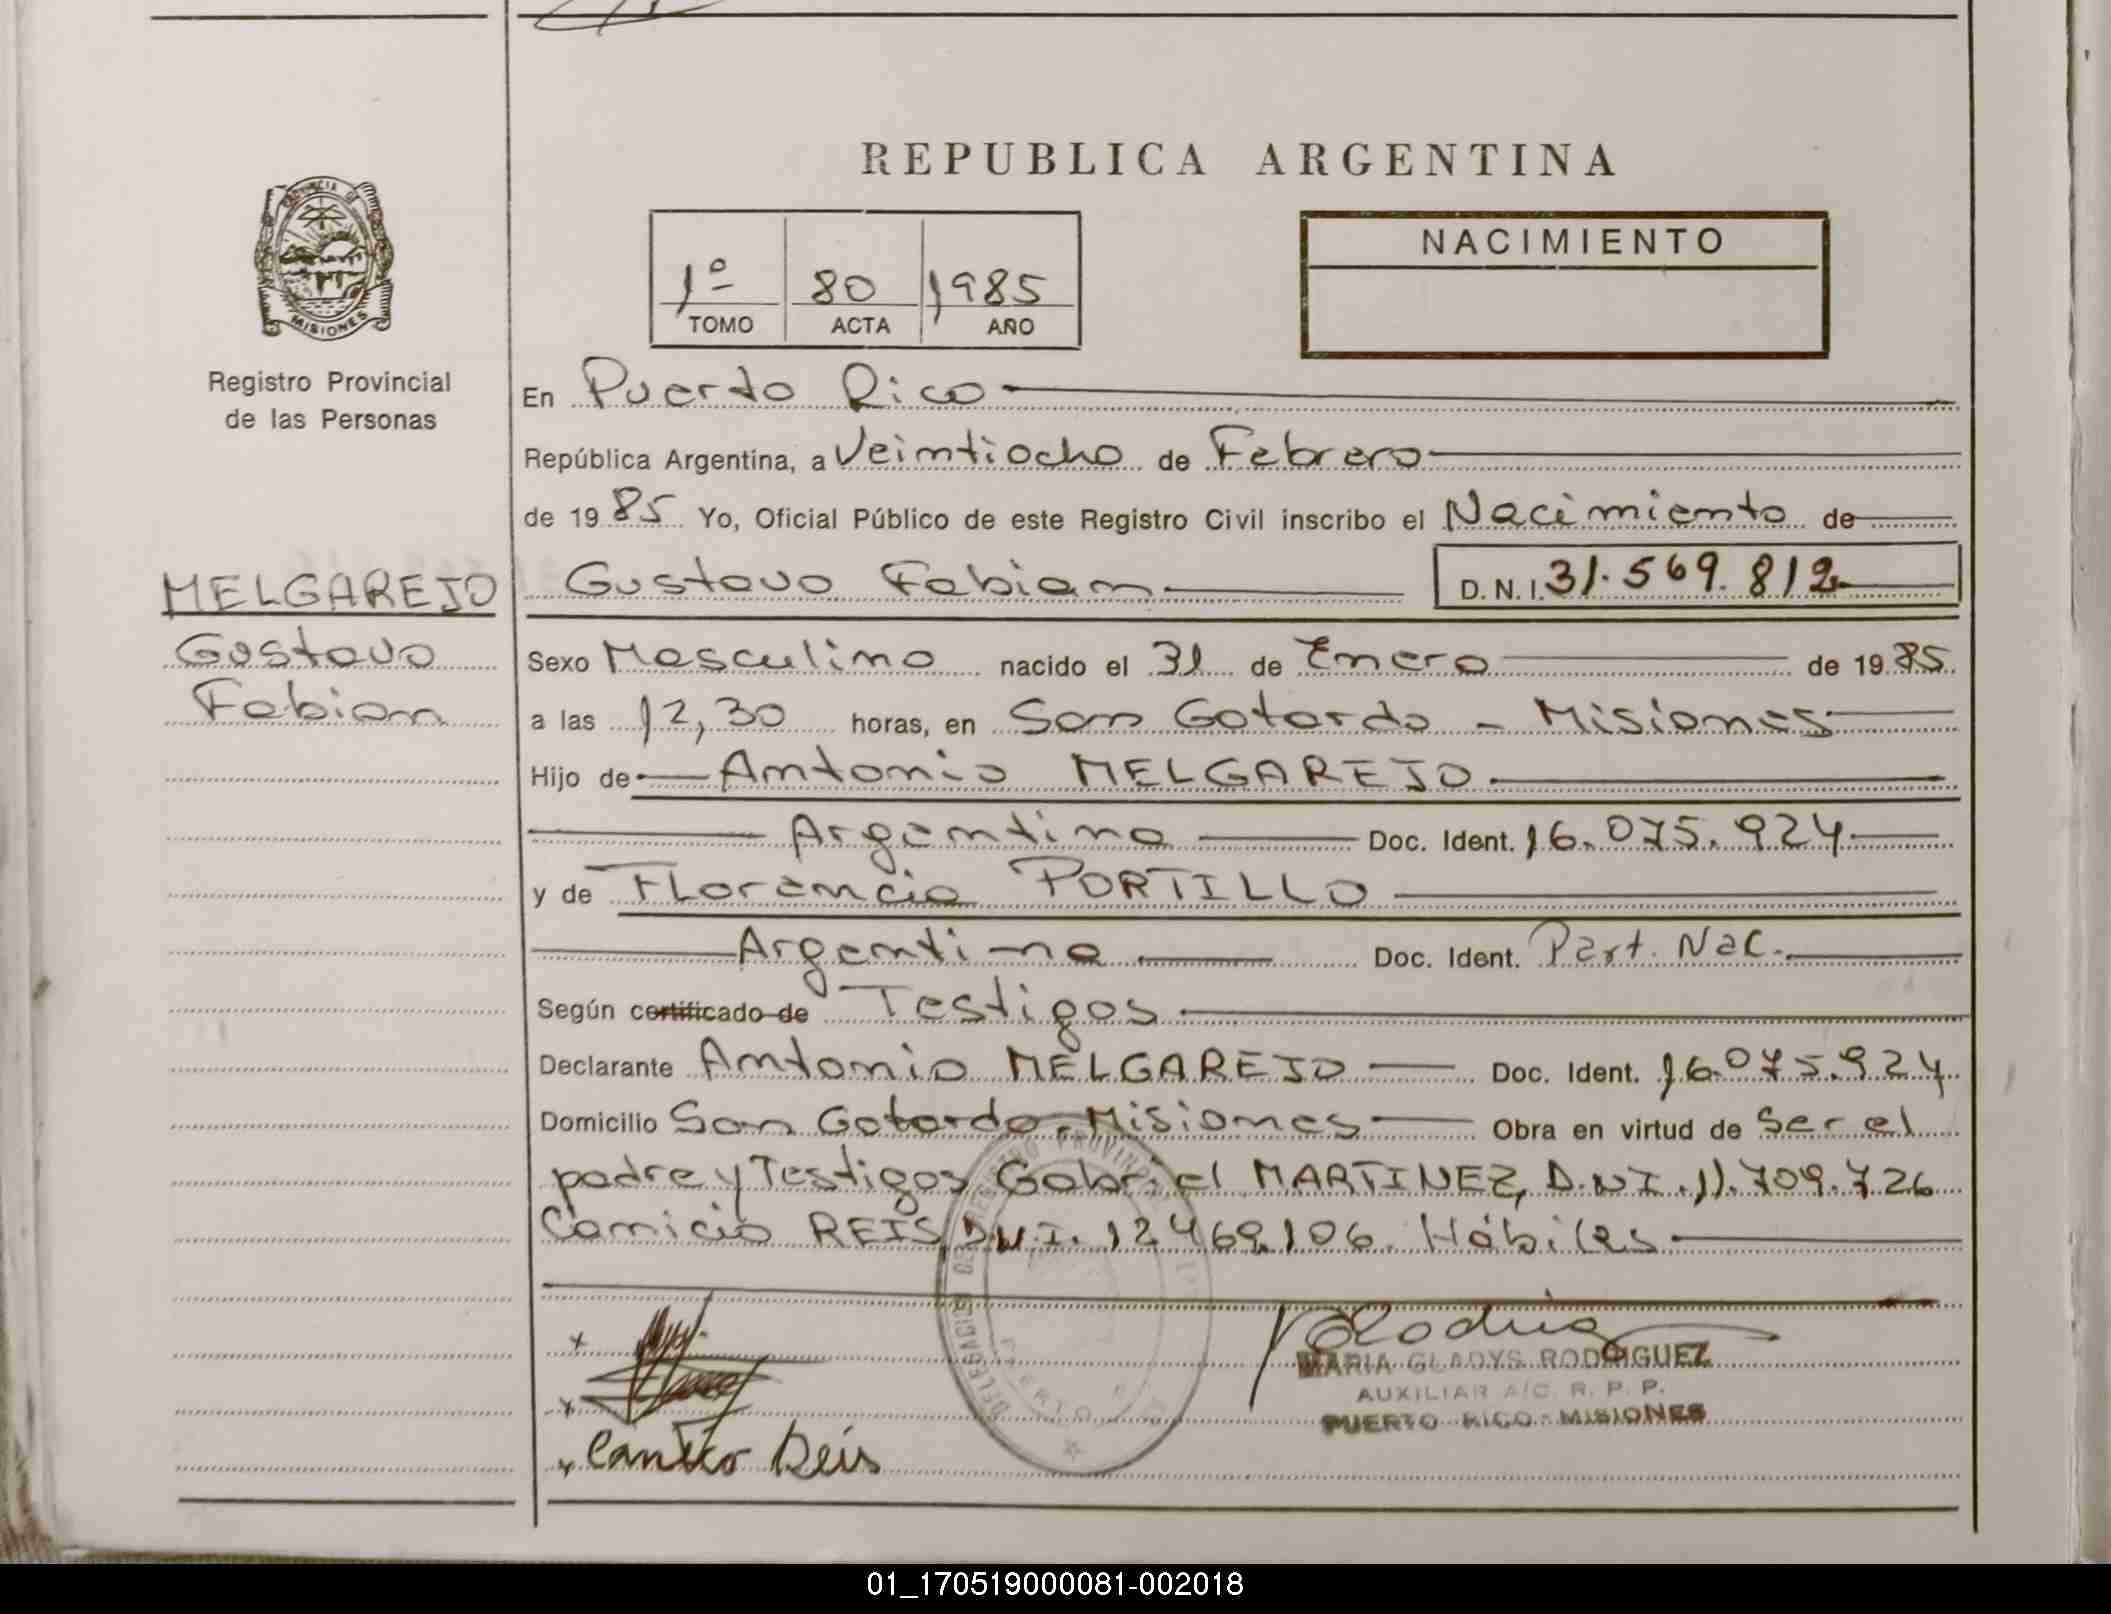 REPUBLICA ARGENTINA
PROVINCIA DE
MISIONES
Registro Provincial
de las Personas
1º 80 1985
TOMO ACTA AÑO
NACIMIENTO
En Puerto Rico
República Argentina, a Veintiocho de Febrero
de 1985 Yo, Oficial Público de este Registro Civil inscribo el Nacimiento de
MELGAREJO
Gustavo
Fabian
Gustavo Fabian D.N.I. 31.569.812
Sexo Masculino nacido el 31 de Enero de 1985
a las 12,30 horas, en San Gotardo - Misiones
Hijo de Antonio MELGAREJO
Argentina Doc. Ident. 16.075.924
y de Florencia PORTILLO
Argentina Doc. Ident. Part. Nac.
Según certificado de Testigos
Declarante Antonio MELGAREJO Doc. Ident. 16.075.924
Domicilio San Gotardo, Misiones Obra en virtud de Ser el
padre y Testigos Gabriel MARTINEZ, D.N.I. 11.709.726
REIS, D.N.I. 12.469.106. Hábiles
DELEGACION DEL REGISTRO PROVINCIAL
MARIA GLADYS RODRIGUEZ
AUXILIAR A/C. R. P. P.
PUERTO RICO - MISIONES
Reis
01_170519000081-002018